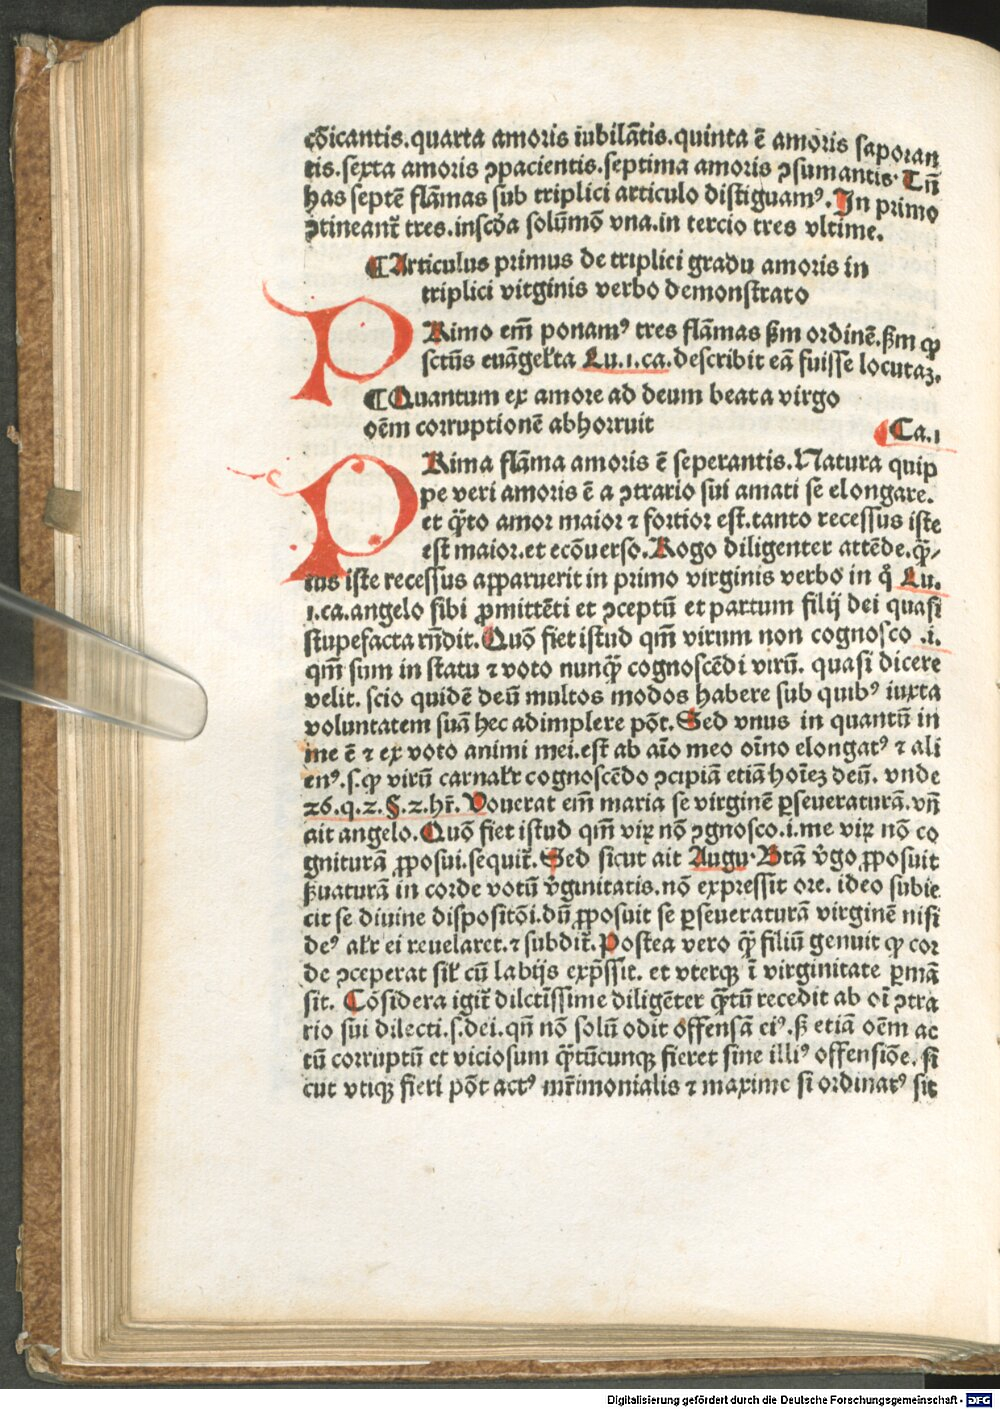 cōicantis.quarta amoris iubilātis.quinta ē amoris saporan
tis.sexta amoris ꝯpacientis.septima amoris ꝯsumantis. Tū
has septē flāmas sub triplici articulo distiguamꝰ. In primo
ꝯtineant᷑ tres.inscd̄a solūmō vna.in tercio tres vltime.
¶Articulus primus de triplici gradu amoris in
triplici virginis verbo demonstrato
PRimo em̄ ponamꝰ tres flāmas ẜm ordinē.ẜm ꝙ
sctūs euāgelꝛta Lu.1.ca.describit eā fuisse locutaꝫ.
¶Quantum ex amore ad deum beata virgo
oēm corruptionē abhorruit
Ca.1
PRima flāma amoris ē seperantis.Natura quip
pe veri amoris ē a ꝯtrario sui amati se elongare.
et q̄to amor maior ⁊ fortior est.tanto recessus iste
est maior.et ecōuerso.Rogo diligenter attēde.q̄/
tus iste recessus apparuerit in primo virginis verbo in q̊ Lu.
1.ca.angelo sibi ꝓmittēti et ꝯceptū et partum filij dei quasi
stupefacta rn̄dit.Quō fiet istud qm̄ virum non cognosco .i.
qm̄ sum in statu ⁊ voto nunq̄ cognoscēdi virū. quasi dicere
velit. scio quidē deū multos modos habere sub quibꝰ iuxta
voluntatem suā hec adimplere pōt.Sed vnus in quantū in
me ē ⁊ ex voto animi mei.est ab aīo meo oīno elongatꝰ ⁊ ali
enꝰ.s.ꝙ virū carnalꝛ cognoscēdo ꝯcipiā etiā hoīeꝫ deū. vnde
26.q.2.§.2.hr̄. Vouerat em̄ maria se virginē ꝑseueraturā.vn̄
ait angelo.Quō fiet istud qm̄ viꝝ nō ꝯgnosco.i.me viꝝ nō co
gniturā ꝓposui.sequit᷑.Sed sicut ait Augu.Btā v̄go ꝓposuit
ẜuaturā in corde votū v̄ginitatis.nō expressit ore. ideo subie
cit se diuine dispositōi.dū ꝓposuit se ꝑseueraturā virginē nisi
deꝰ alꝛ ei reuelaret.⁊ subdit᷑.Postea vero q̄ filiū genuit ꝙ cor
de ꝯceperat silꝛ cū labijs exp̄ssit. et vterqꝫ ī virginitate ꝑmā
sit. Cōsidera igit᷑ dilctīssime diligēter q̄tū recedit ab oī ꝯtra
rio sui dilecti.s.dei.qn̄ nō solū odit offensā eiꝰ.ẜ etiā oēm ac
tū corruptū et viciosum q̄tūcunqꝫ fieret sine illiꝰ offensiōe. si
cut vtiqꝫ fieri pōt actꝰ mr̄imonialis ⁊ maxime si ordinatꝰ sit
Digitalisierung gefördert durch die Deutsche Forschungsgemeinschaft - DFG